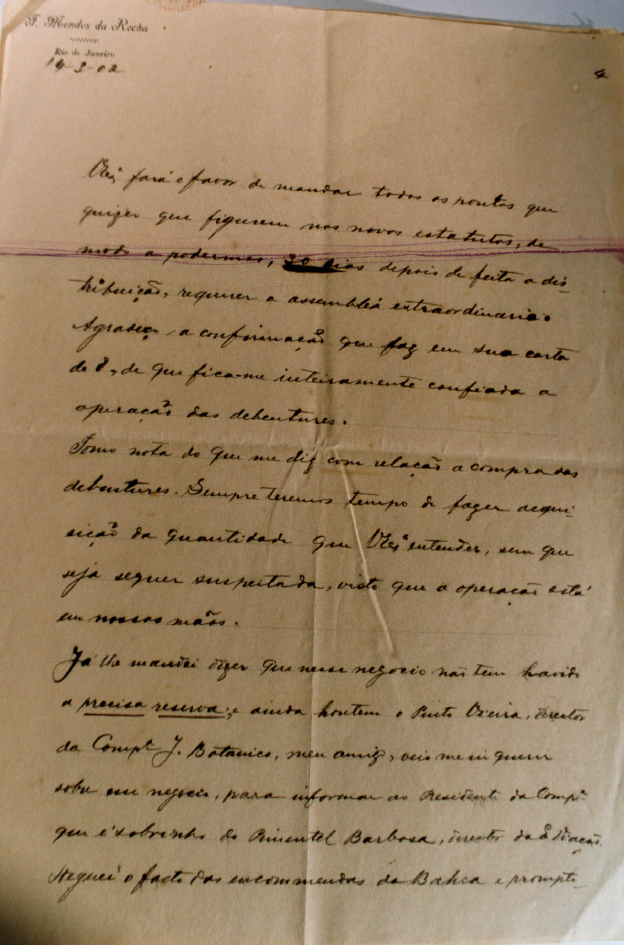 F. Mendes da Rocha
Rio de Janeiro
14-3-02
fará o favor de mandar todos os pontos que
quizer que figurem nos novos estatutos, de
modo a podermos, 30 dias depois de feita a dis-
tribuição, requerer a assembléa extraordinaria.
Agradeço a confirmação que faz em sua carta
de 8, de que fica-me inteiramente confiada a
operação das debentures.
Tomo nota do que me diz com relação a compra das
debentures. Sempre teremos tempo de fazer acqui-
sição da quantidade que entender, sem que
seja sequer suspeitada, visto que a operação está
em nossas mãos.
Já lhe mandei dizer que nesse negocio não tem havido
a precisa reserva; e ainda hontem o Pinto Vieira, director
da Compª J. Botanico, meu amigo, veio me inquerir
sobre esse negocio, para informar ao Presidente da Compª
que é sobrinho do Pimentel Barbosa, director da
Neguei o facto das encommendas da Bahia e prompti-